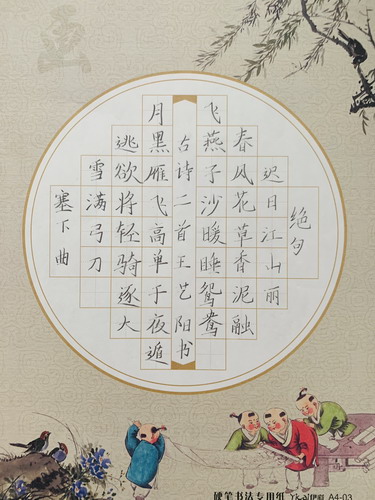 绝句
迟日江山丽
春风花草香泥融
飞燕子沙暖睡鸳鸯
古诗二首王艺阳书
月黑雁飞高单于夜遁
逃欲将轻骑逐大
雪满弓刀
塞下曲
硬笔书法专用纸 A4-03